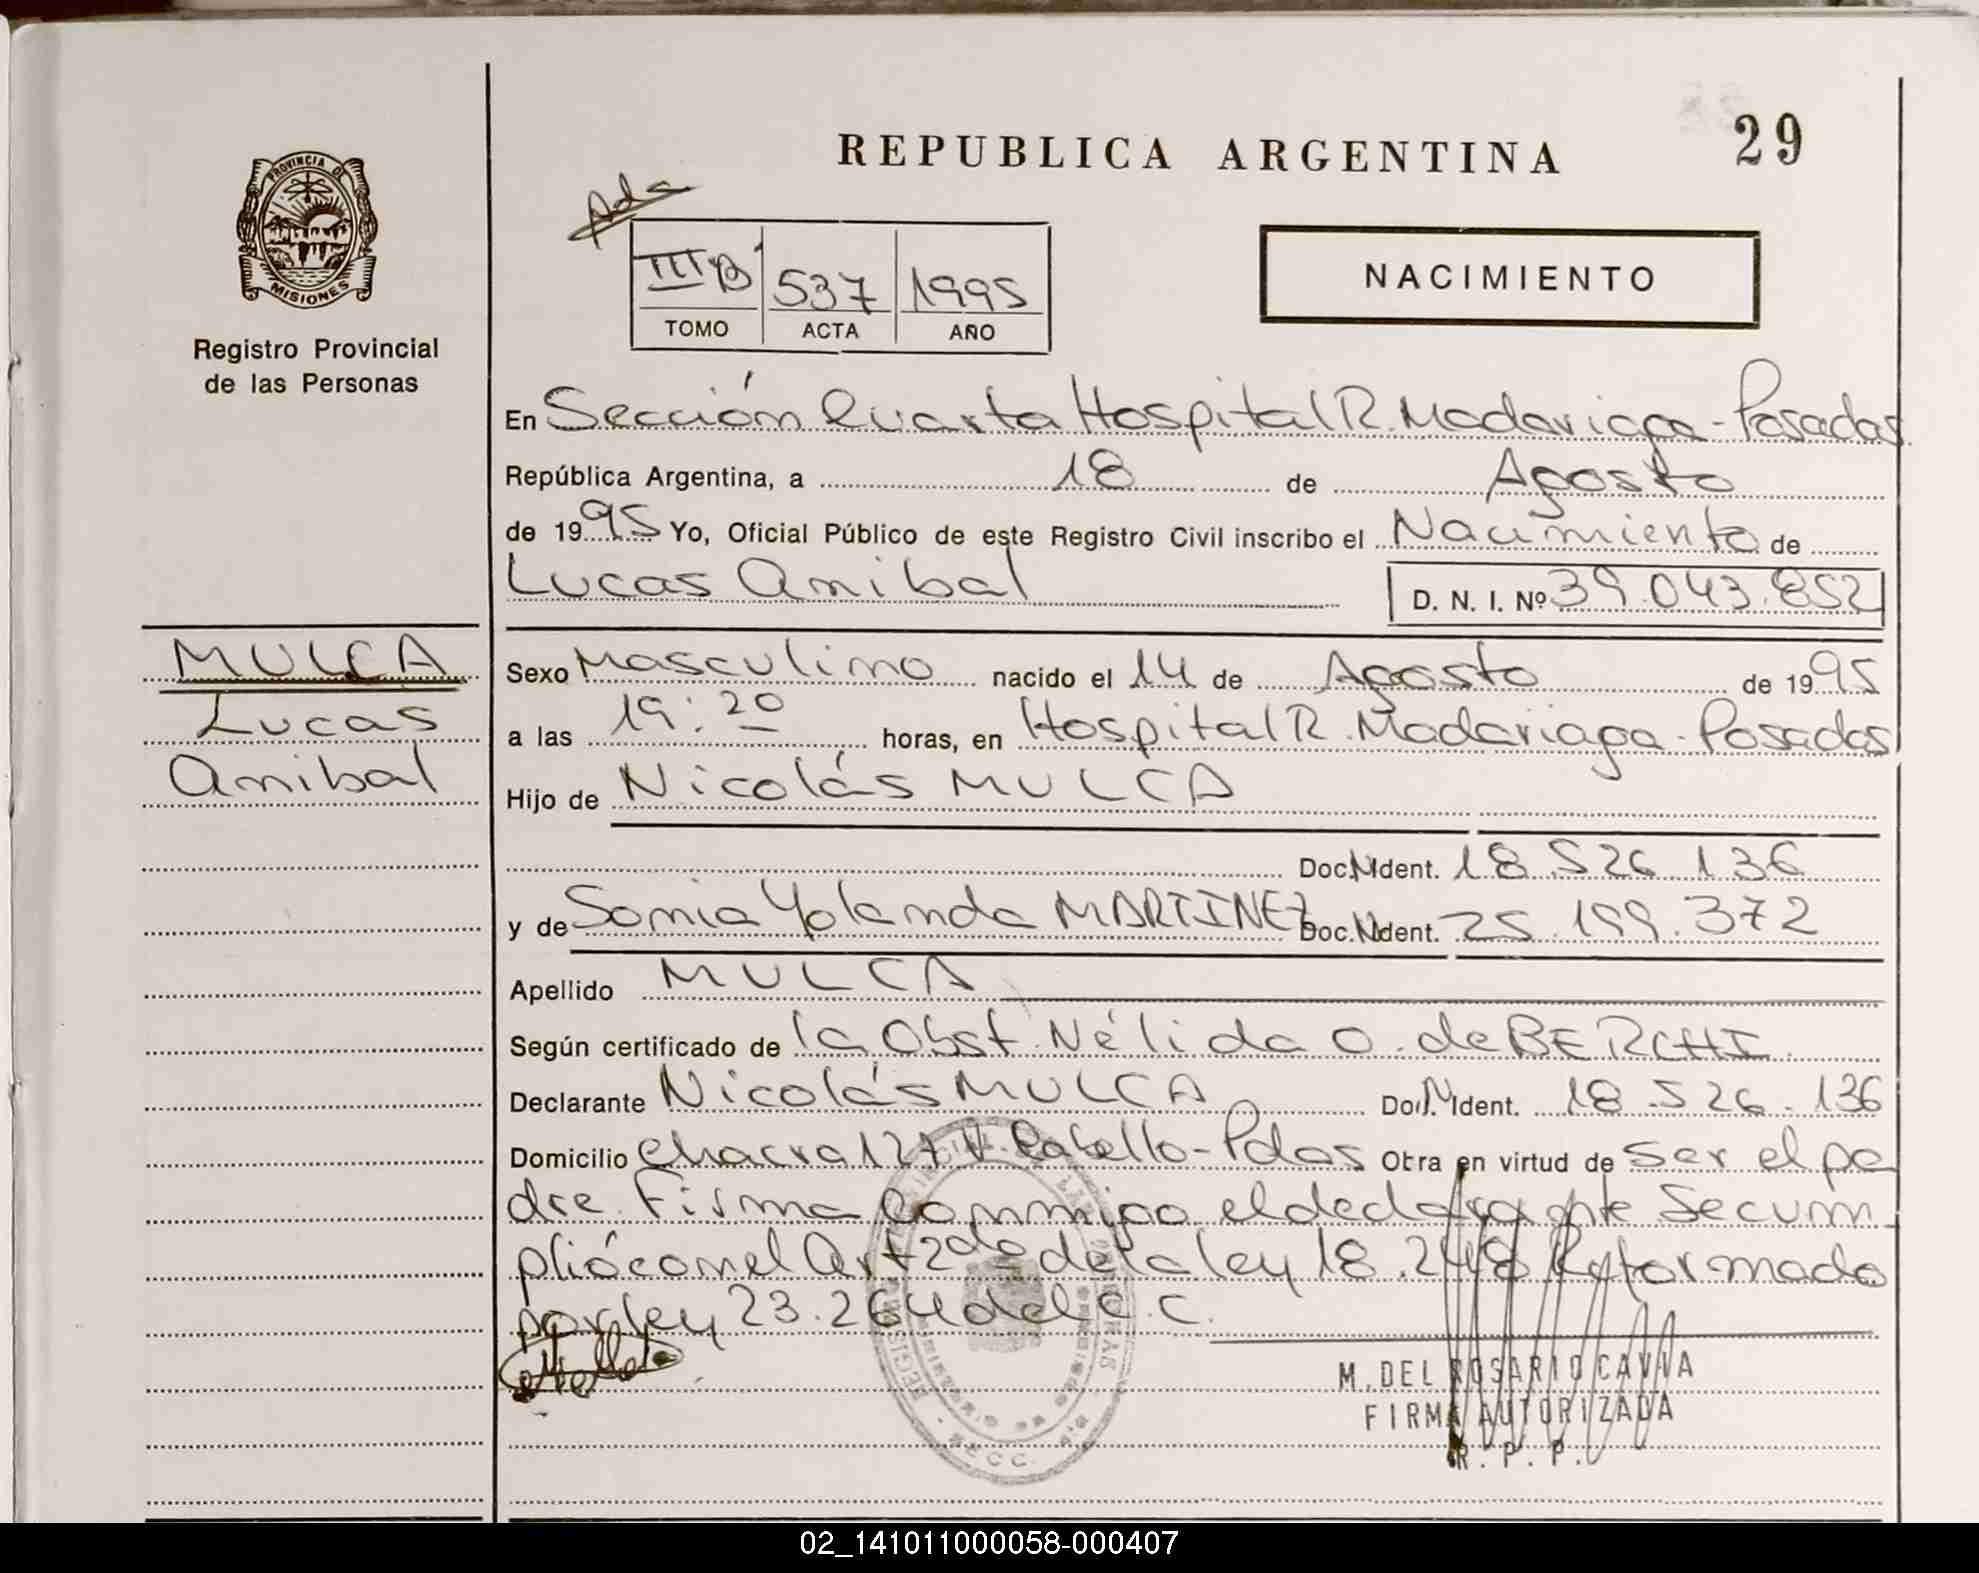 29
REPUBLICA ARGENTINA
PROVINCIA DE
MISIONES
Registro Provincial
de las Personas
Ads
III "B" 537 1995
TOMO ACTA AÑO
NACIMIENTO
En Sección Cuarta Hospital R. Madariaga - Posadas
República Argentina, a 18 de Agosto
de 1995 Yo, Oficial Público de este Registro Civil inscribo el Nacimiento de
Lucas Anibal D. N. I. Nº 39.043.852
MULCA
Lucas
Anibal
Sexo Masculino nacido el 14 de Agosto de 1995
a las 19:20 horas, en Hospital R. Madariaga - Posadas
Hijo de Nicolás MULCA
Doc. N Ident. 18.526.136
y de Sonia Yolanda MARTINEZ Doc. N Ident. 25.199.372
Apellido MULCA
Según certificado de la Obst. Nélida O. de BERCHI
Declarante Nicolás MULCA Doc. N Ident. 18.526.136
Domicilio Chacra 127 V. Cabello - Pdas Otra en virtud de ser el pa
dre. Firma conmigo el declarante Se cum
plió con el Art 2do de la ley 18.248 Reformado
por ley 23.264 del C.C.
SECC. 4ta
M. DEL ROSARIO CAVIA
FIRMA AUTORIZADA
R. P. P.
02_141011000058-000407